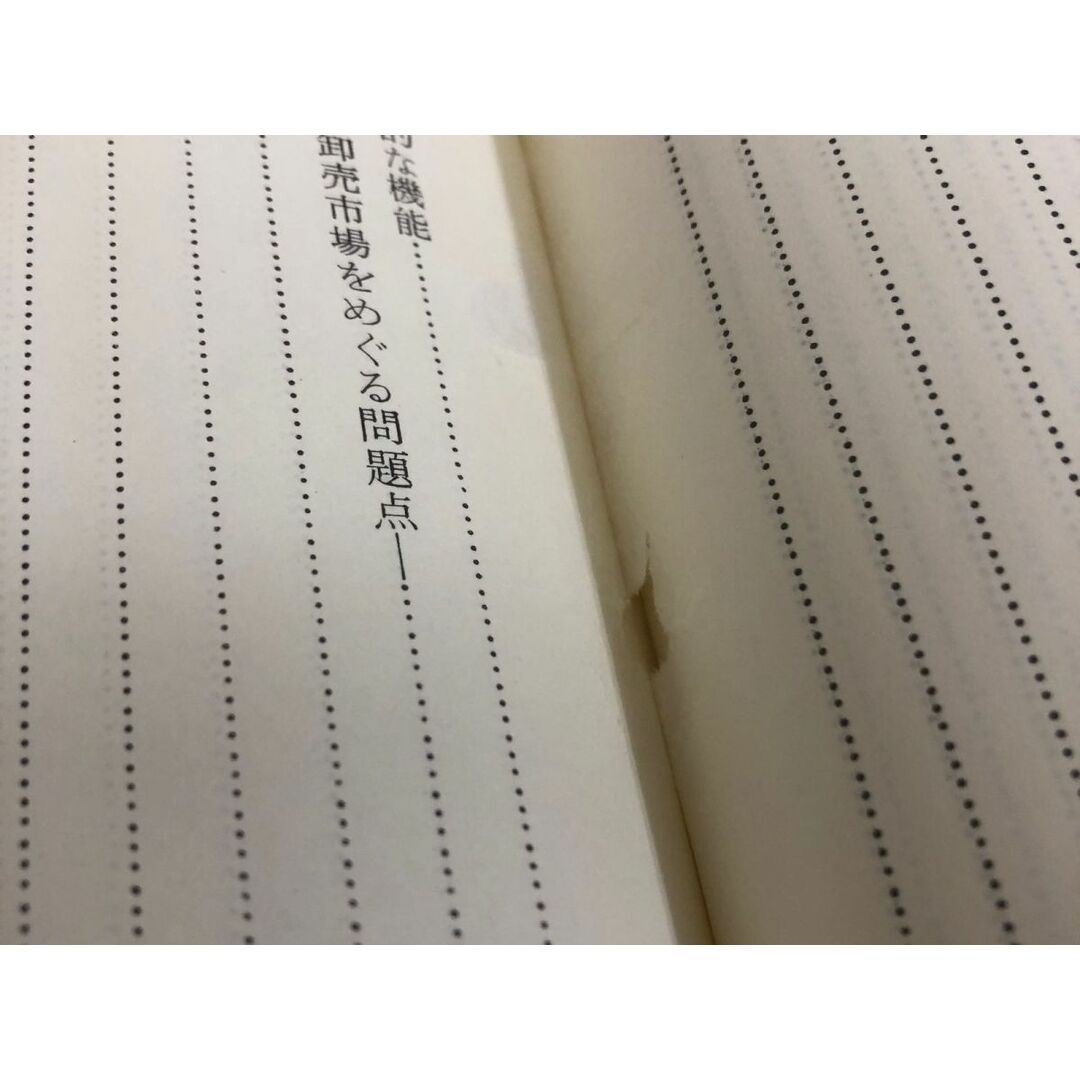 的な機能
卸売市場をめぐる問題点―